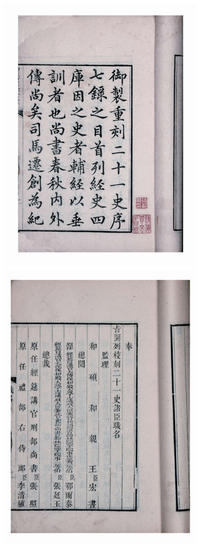 御製重刻二十一史序
七錄之目首列經史四
庫因之史者輔經以垂
訓者也尚書春秋內外
傳尚矣司馬遷創為紀
奉
旨開列校刻二十一史諸臣職名
監理
和碩和親王宏晝
總閱
鄂爾泰
總裁
張廷玉
原任經筵講官刑部尚書臣張照
原任禮部右侍郎臣李清植